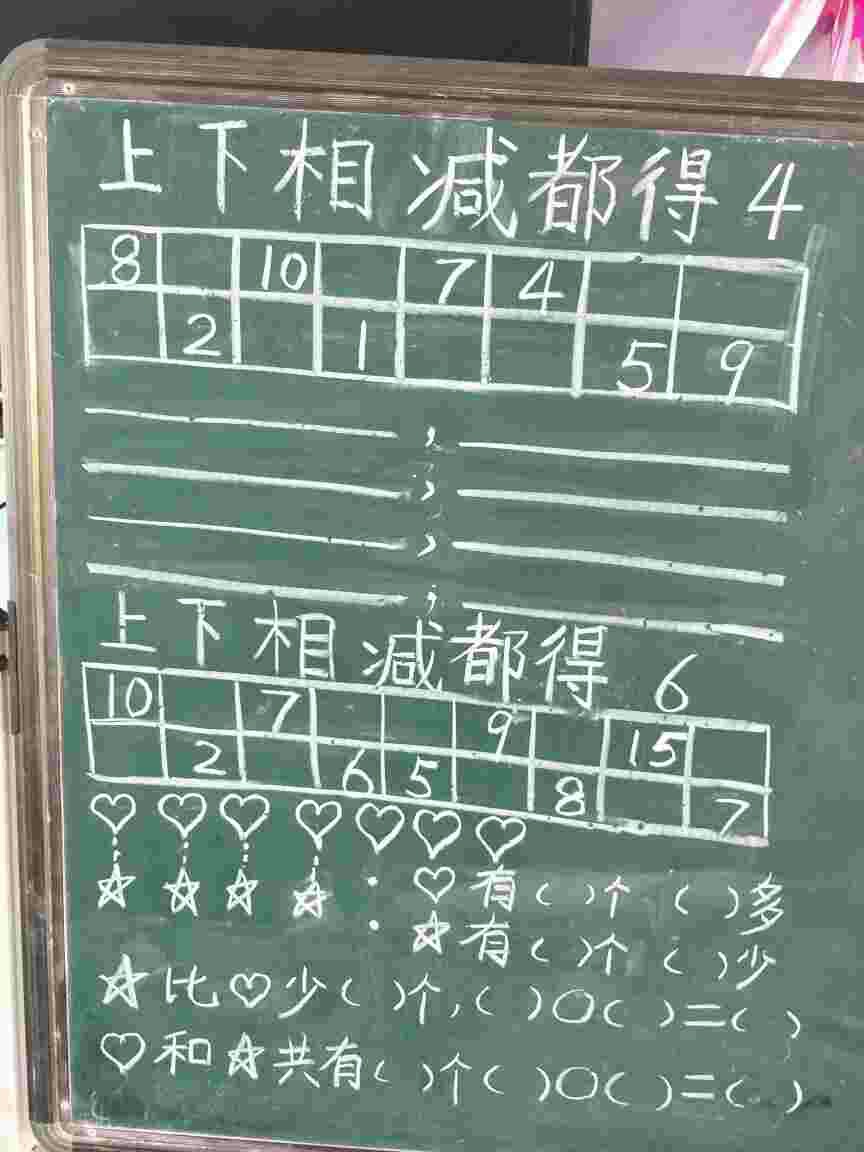 上下相减都得4
8 10 7 4
2 1 5 9
,
,
,
,
上下相减都得6
10 7 9 15
2 6 5 8 7
♡ ♡ ♡ ♡ ♡ ♡ ♡
☆ ☆ ☆ ☆ : ♡有( )个 ( )多
☆有( )个 ( )少
☆比♡少( )个,( )○( )=( )
♡和☆共有( )个( )○( )=( )